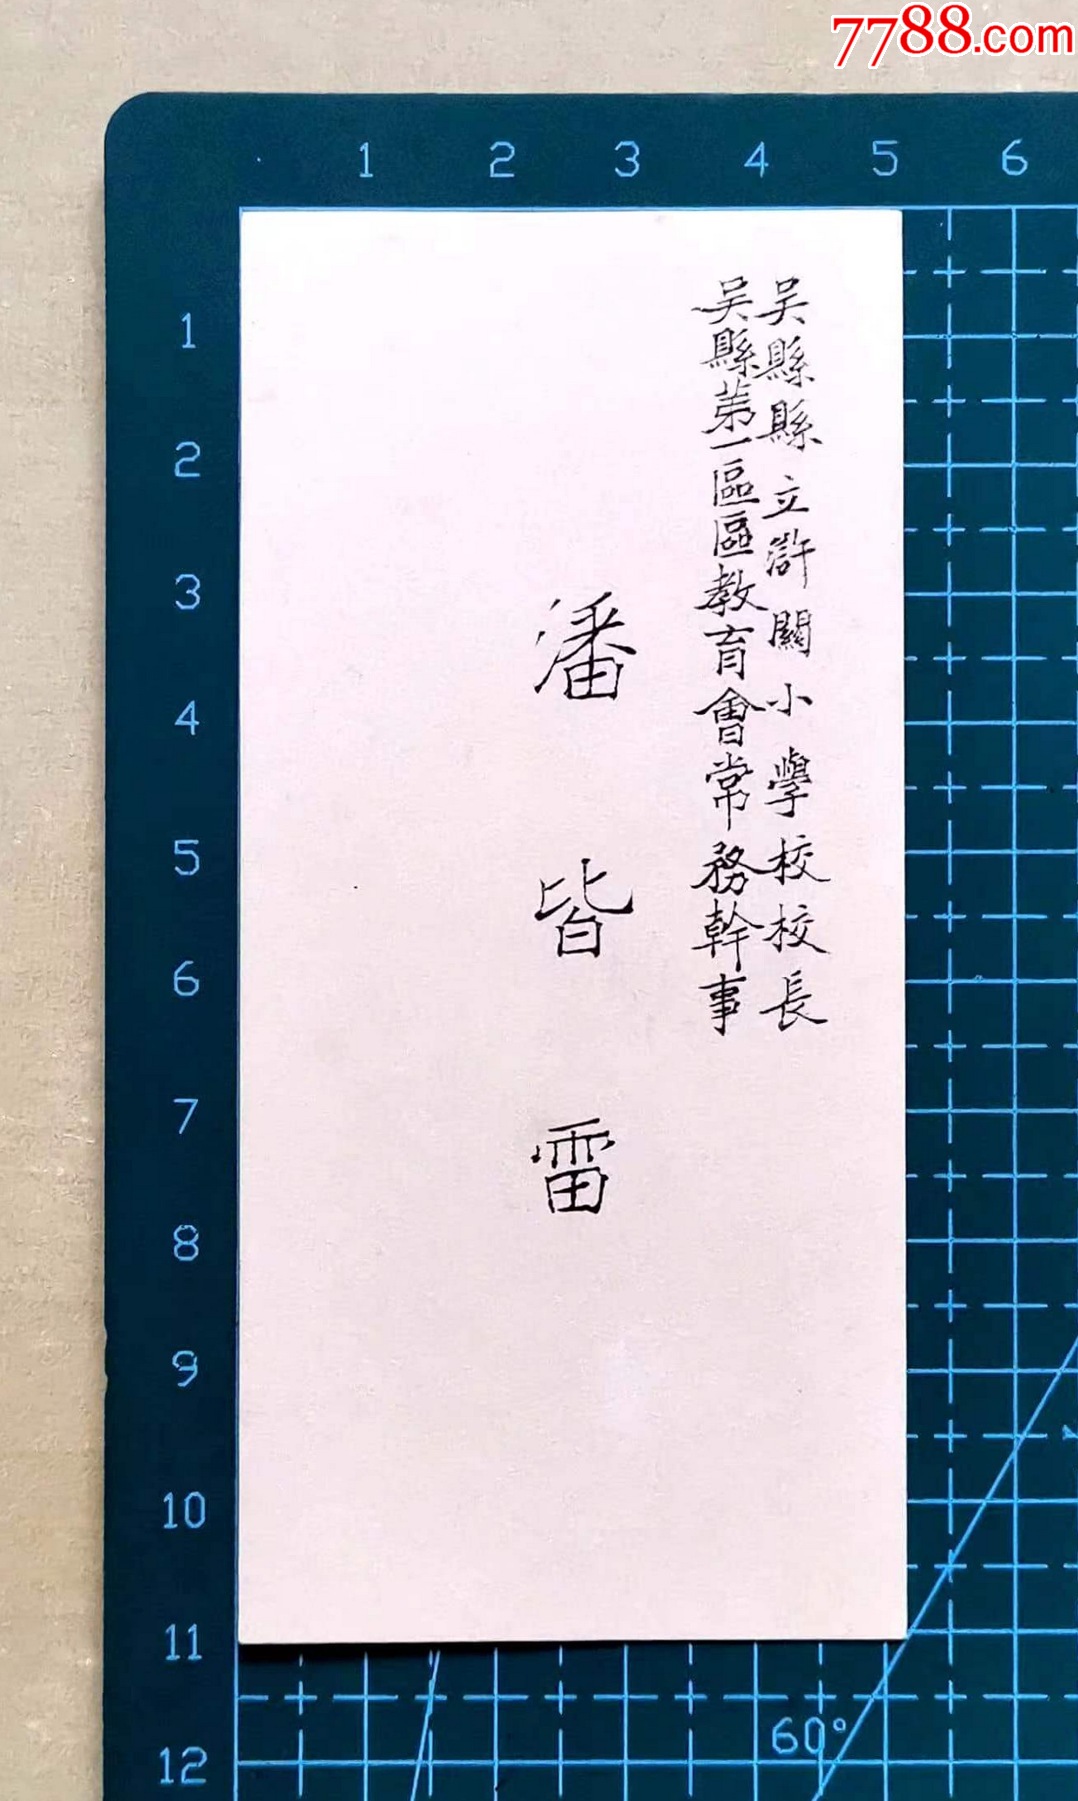 7788.com
1 2 3 4 5 6
吴縣縣立滸關小學校校長
吴縣苐一區區教育會常務幹事
潘皆雷
1
2
3
4
5
6
7
8
9
10
11
12
60°